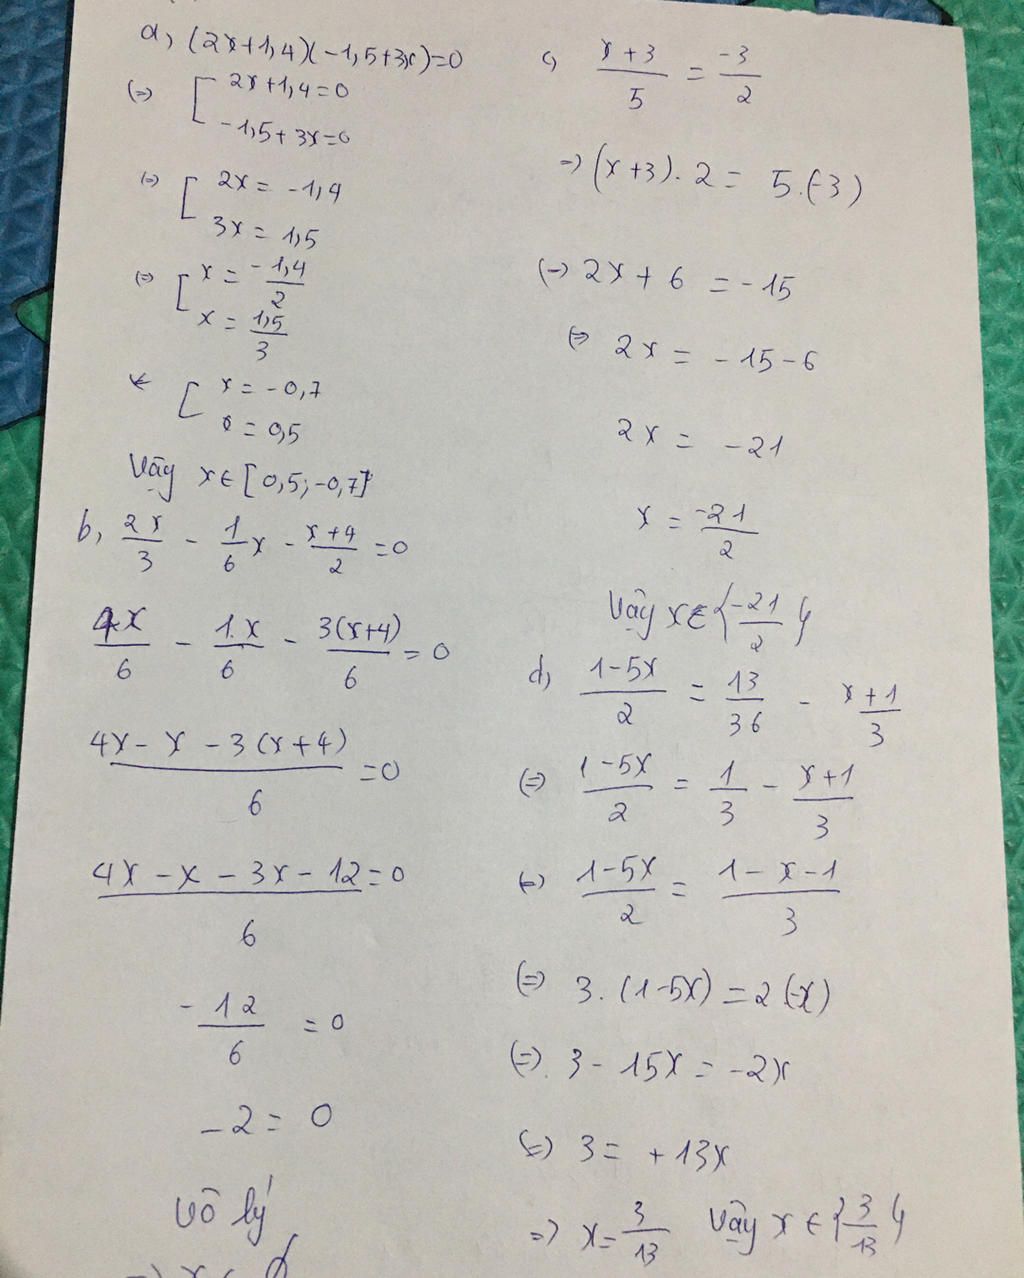 a, (2x+1,4)(-1,5+3x)=0
(=) [ 2x+1,4=0
-1,5+3x=0
(=) [ 2x = -1,4
3x = 1,5
(=) [ x = -1,4/2
x = 1,5/3
[ x = -0,7
x = 0,5
Vậy x ∈ [0,5; -0,7]
b, 2x/3 - 1/6 x - x+4/2 = 0
4x/6 - 1.x/6 - 3(x+4)/6 = 0
4x - x - 3(x+4)/6 = 0
4x - x - 3x - 12/6 = 0
-12/6 = 0
-2 = 0
Vô lý
c, x+3/5 = -3/2
=) (x+3).2 = 5.(-3)
(=) 2x + 6 = -15
(=) 2x = -15-6
2x = -21
x = -21/2
Vậy x ∈ {-21/2}
d, 1-5x/2 = 13/36 - x+1/3
(=) 1-5x/2 = 1/3 - x+1/3
(=) 1-5x/2 = 1-x-1/3
(=) 3.(1-5x) = 2(-x)
(=) 3 - 15x = -2x
(=) 3 = +13x
=) x = 3/13 Vậy x ∈ {3/13}